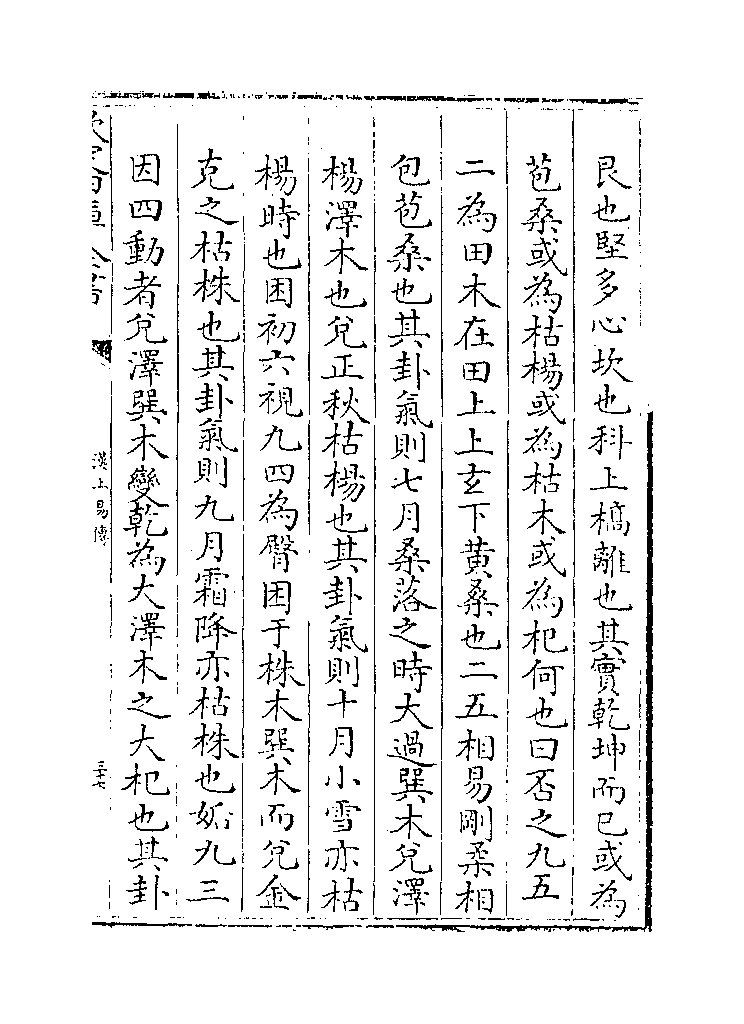 艮也堅多心坎也科上槁離也其實乾坤而已或為
苞桑或為枯楊或為枯木或為杞何也曰否之九五
二為田木在田上上玄下黄桑也二五相易剛柔相
包苞桑也其卦氣則七月桑落之時大過巽木兌澤
楊澤木也兌正秋枯楊也其卦氣則十月小雪亦枯
楊時也困初六視九四為臀困于株木巽木而兌金
克之枯株也其卦氣則九月霜降亦枯株也姤九三
因四動者兌澤巽木變乾為大澤木之大杞也其卦
漢上易傳
三十七